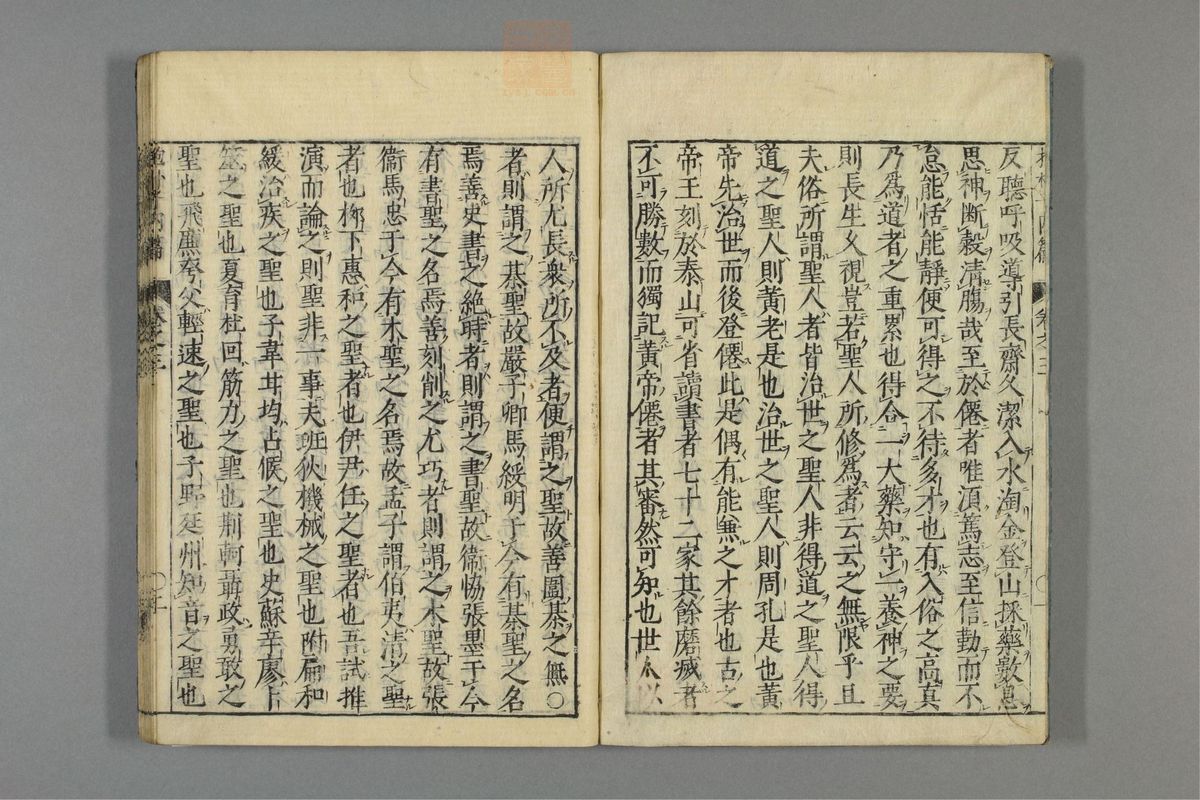 反聽呼吸導引長齋久潔入水淘金登山採藥數息
思神斷穀清腸哉至於僊者唯湏篤志至信勤而不
怠能恬能靜便可得之不待多才也有入俗之高真
乃爲道者之重累也得合一大藥知守一養神之要
則長生久視豈若聖人所修爲者云云之無限乎且
夫俗所謂聖人者皆治世之聖人非得道之聖人得
道之聖人則黃老是也治世之聖人則周孔是也黃
帝先治世而後登僊此是偶有能兼之才者也古之
帝王刻於泰山可省讀書者七十二家其餘磨滅者
不可勝數而獨記黃帝僊者其審然可知也世人以
人所尤長衆所不及者便謂之聖故善圍棊之無〇
者則謂之棊聖故嚴子卿馬綏明于今有棊聖之名
焉善史書之絶時者則謂之書聖故衞協張墨于今
有書聖之名焉善刻削之尤巧者則謂之木聖故張
衞馬忠于今有木聖之名焉故孟子謂伯夷清之聖
者也栁下惠和之聖者也伊尹任之聖者也吾試推
演而論之則聖非一事夫班狄機械之聖也附扁和
緩治疾之聖也子韋甘均占候之聖也史蘇辛廖卜
筮之聖也夏育杜回筋力之聖也荆軻聶政勇敢之
聖也飛廉夸父輕速之聖也子野延州知音之聖也
卷之三